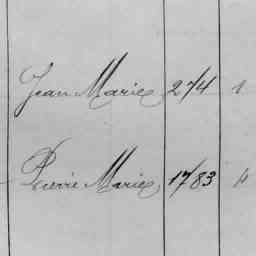 Jean Marie 274 1
Pierre Marie 1783 4